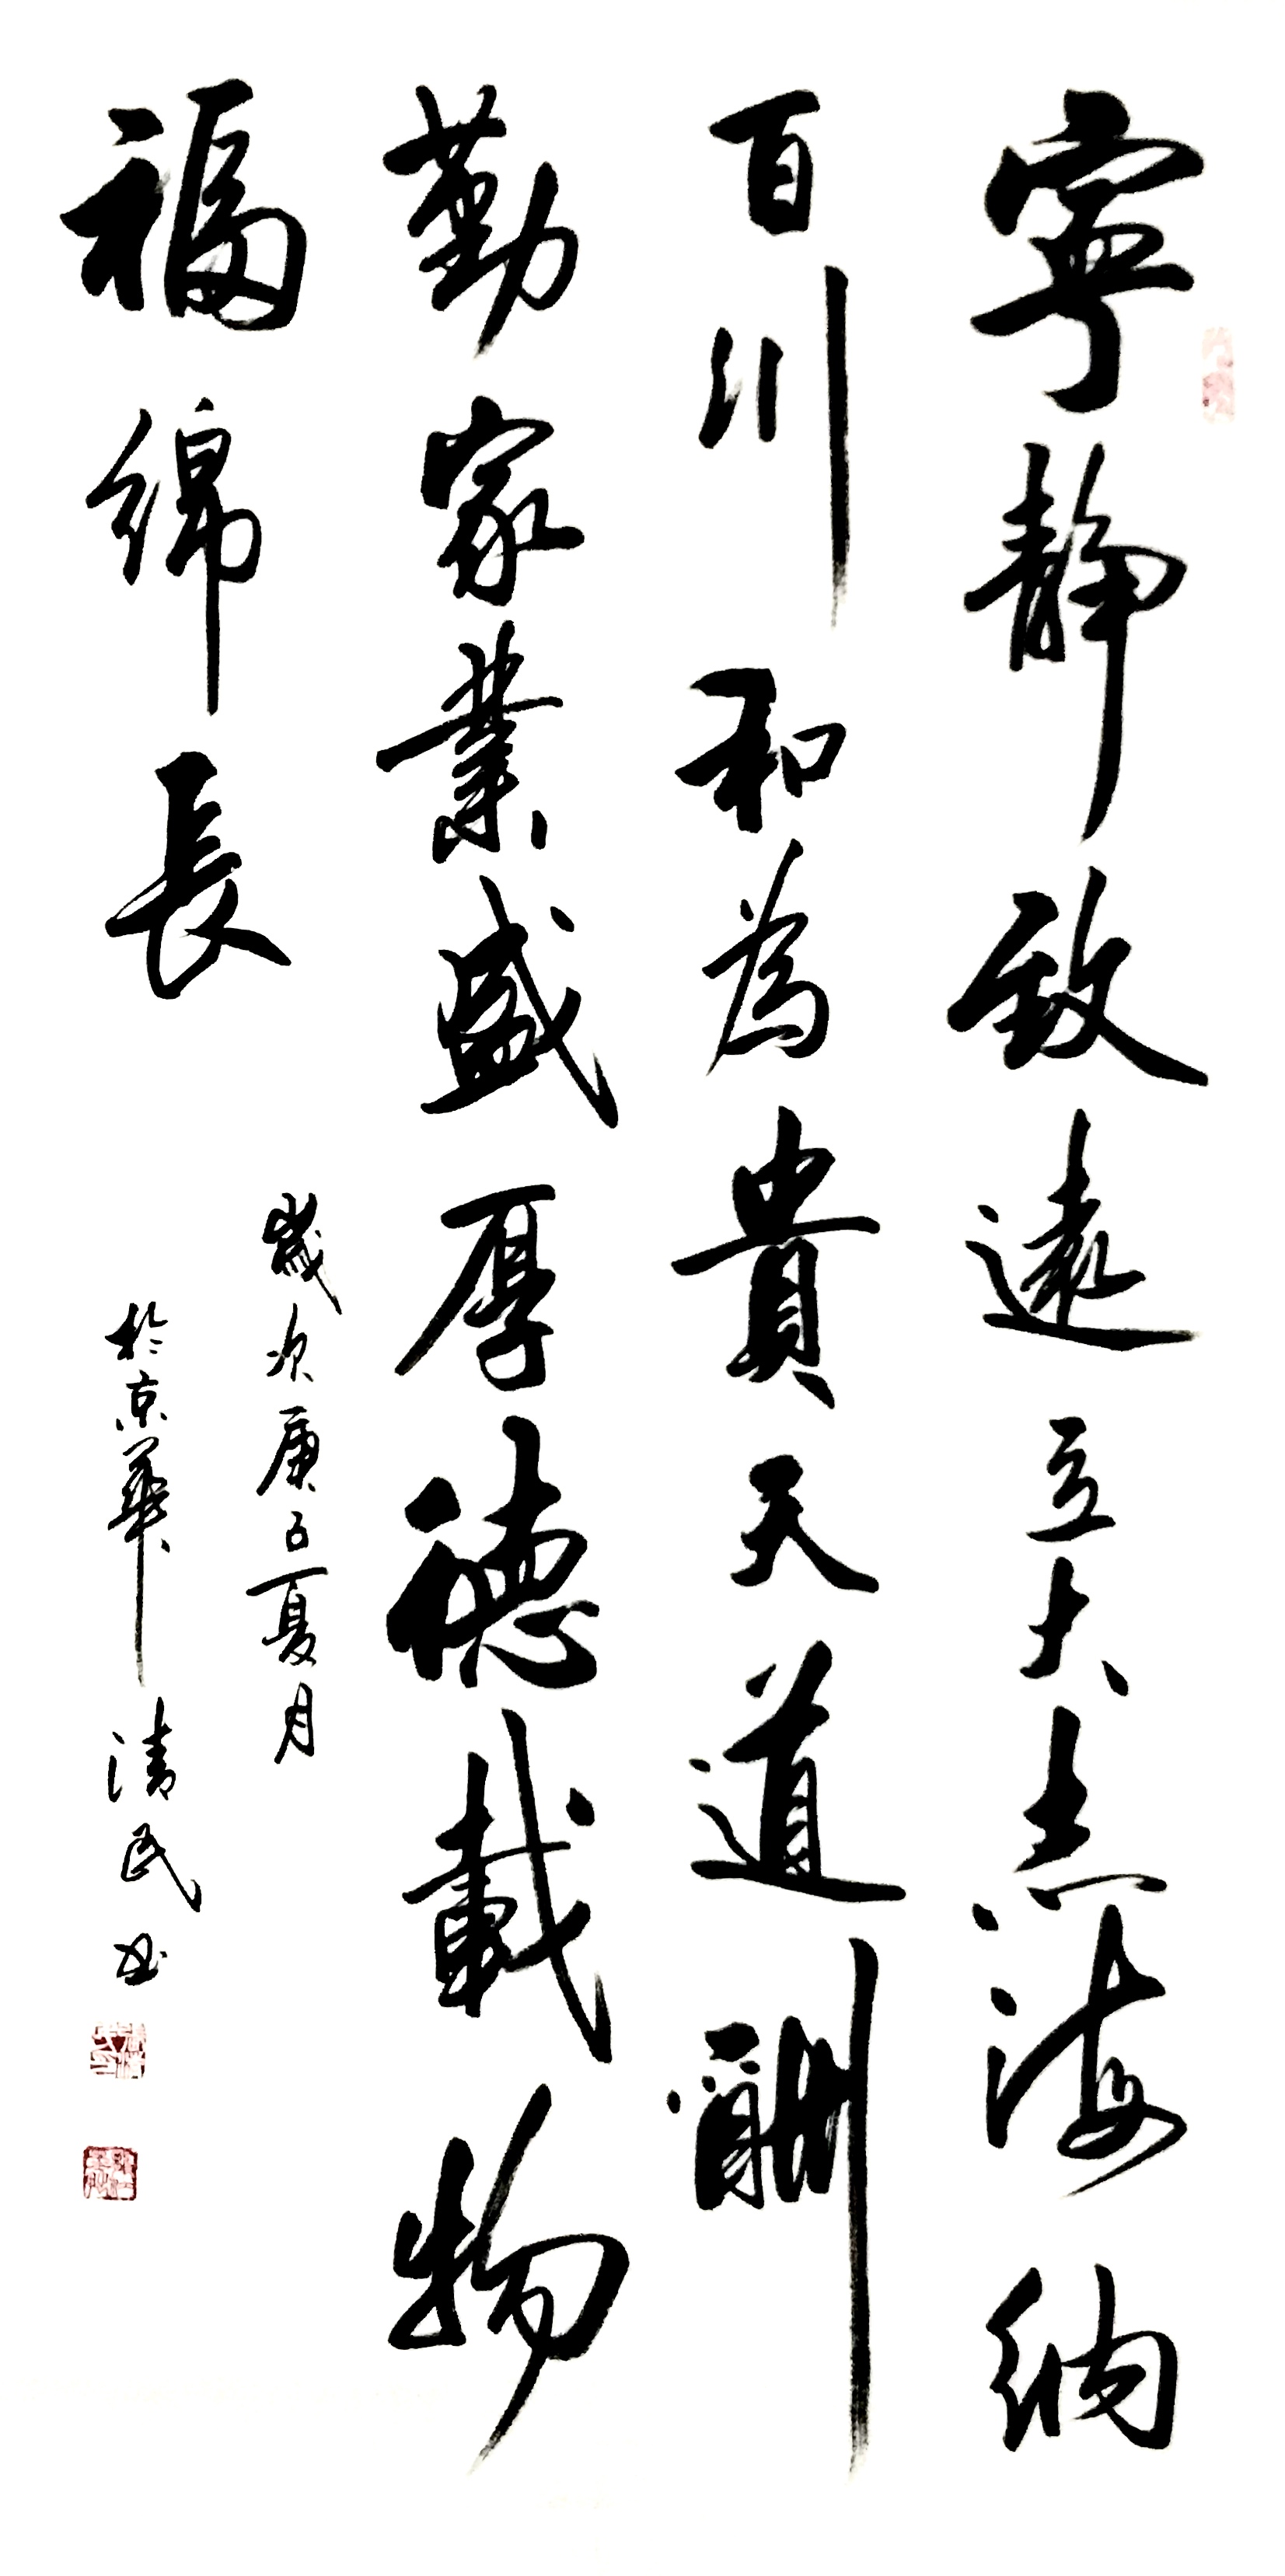 寧靜致遠立大志海納
百川和為貴天道酬
勤家業盛厚德載物
福綿長
歲次庚子夏月
於京華清民书